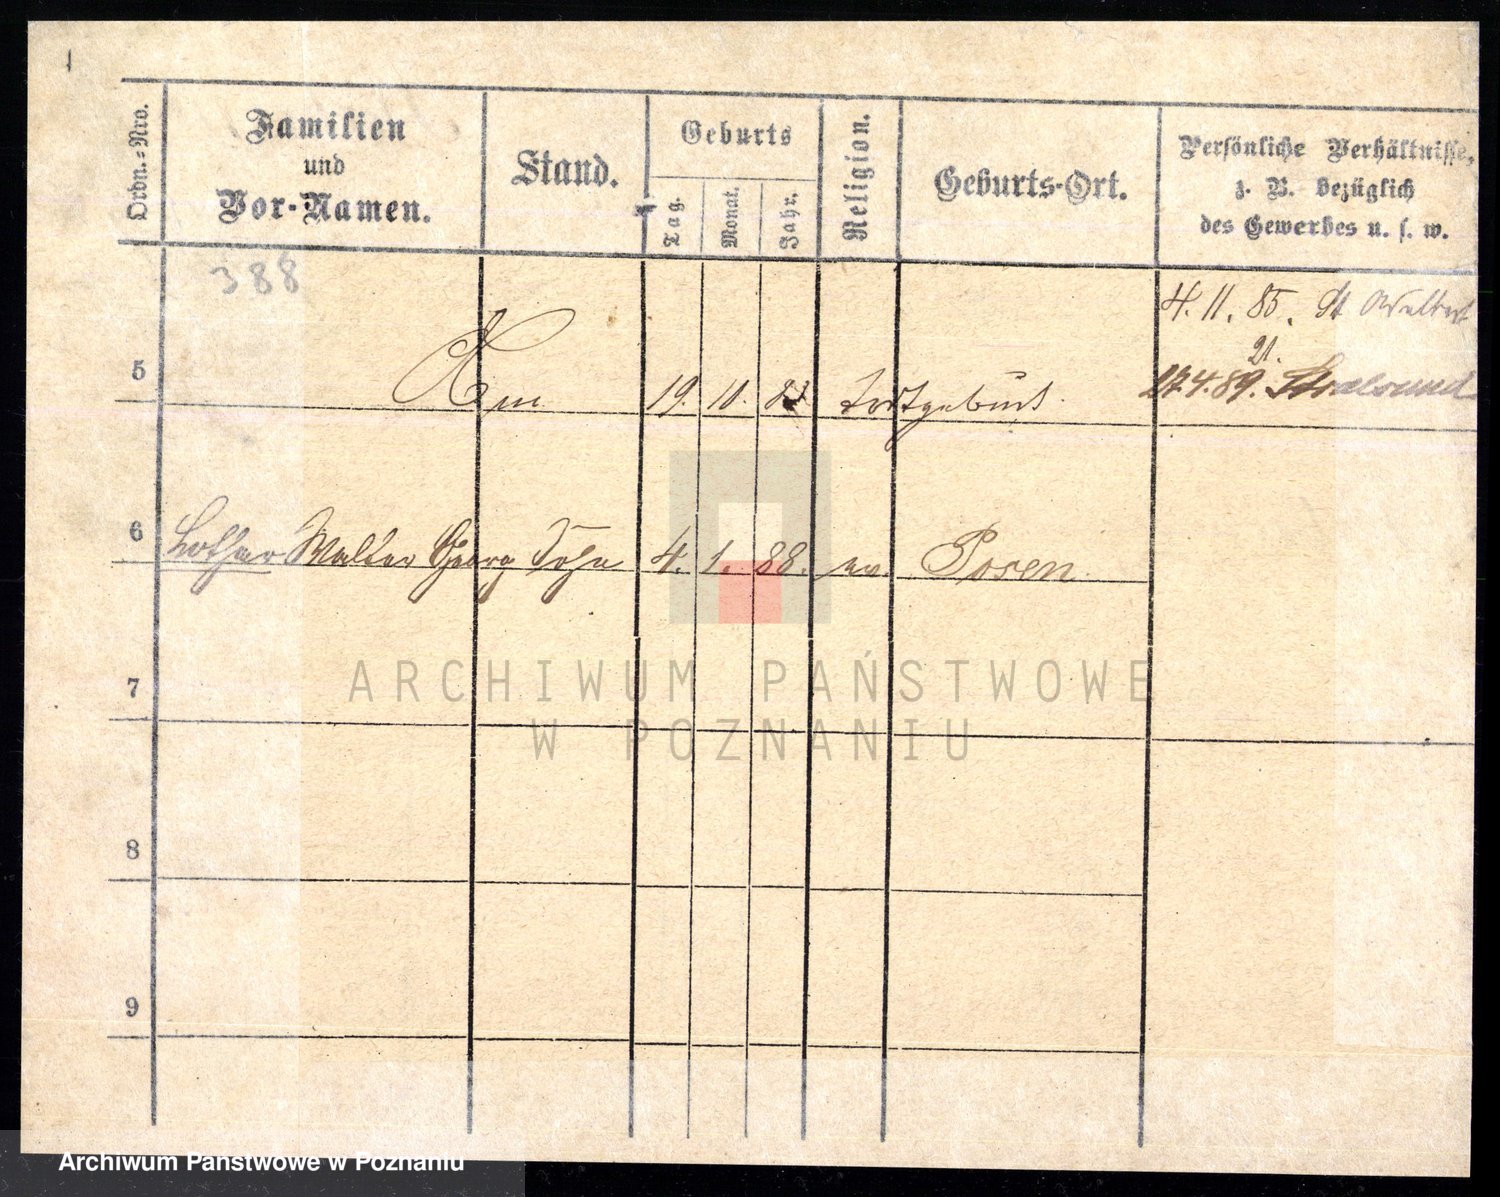 Ordn.-Nro.
Familien
und
Vor-Namen.
Stand.
Geburts
Tag.
Monat.
Jahr.
Religion.
Geburts-Ort.
Persönliche Verhältnisse,
z. B. bezüglich
des Gewerbes u. s. w.
388
4. 11. 85. St
21.
5
19. 10. Todtgeburt.
27.4.89. Stralsund
6 Lothar Walter Georg Sohn 4. 1. 88. ev. Posen
7
8
9
ARCHIWUM PAŃSTWOWE
W POZNANIU
Archiwum Państwowe w Poznaniu